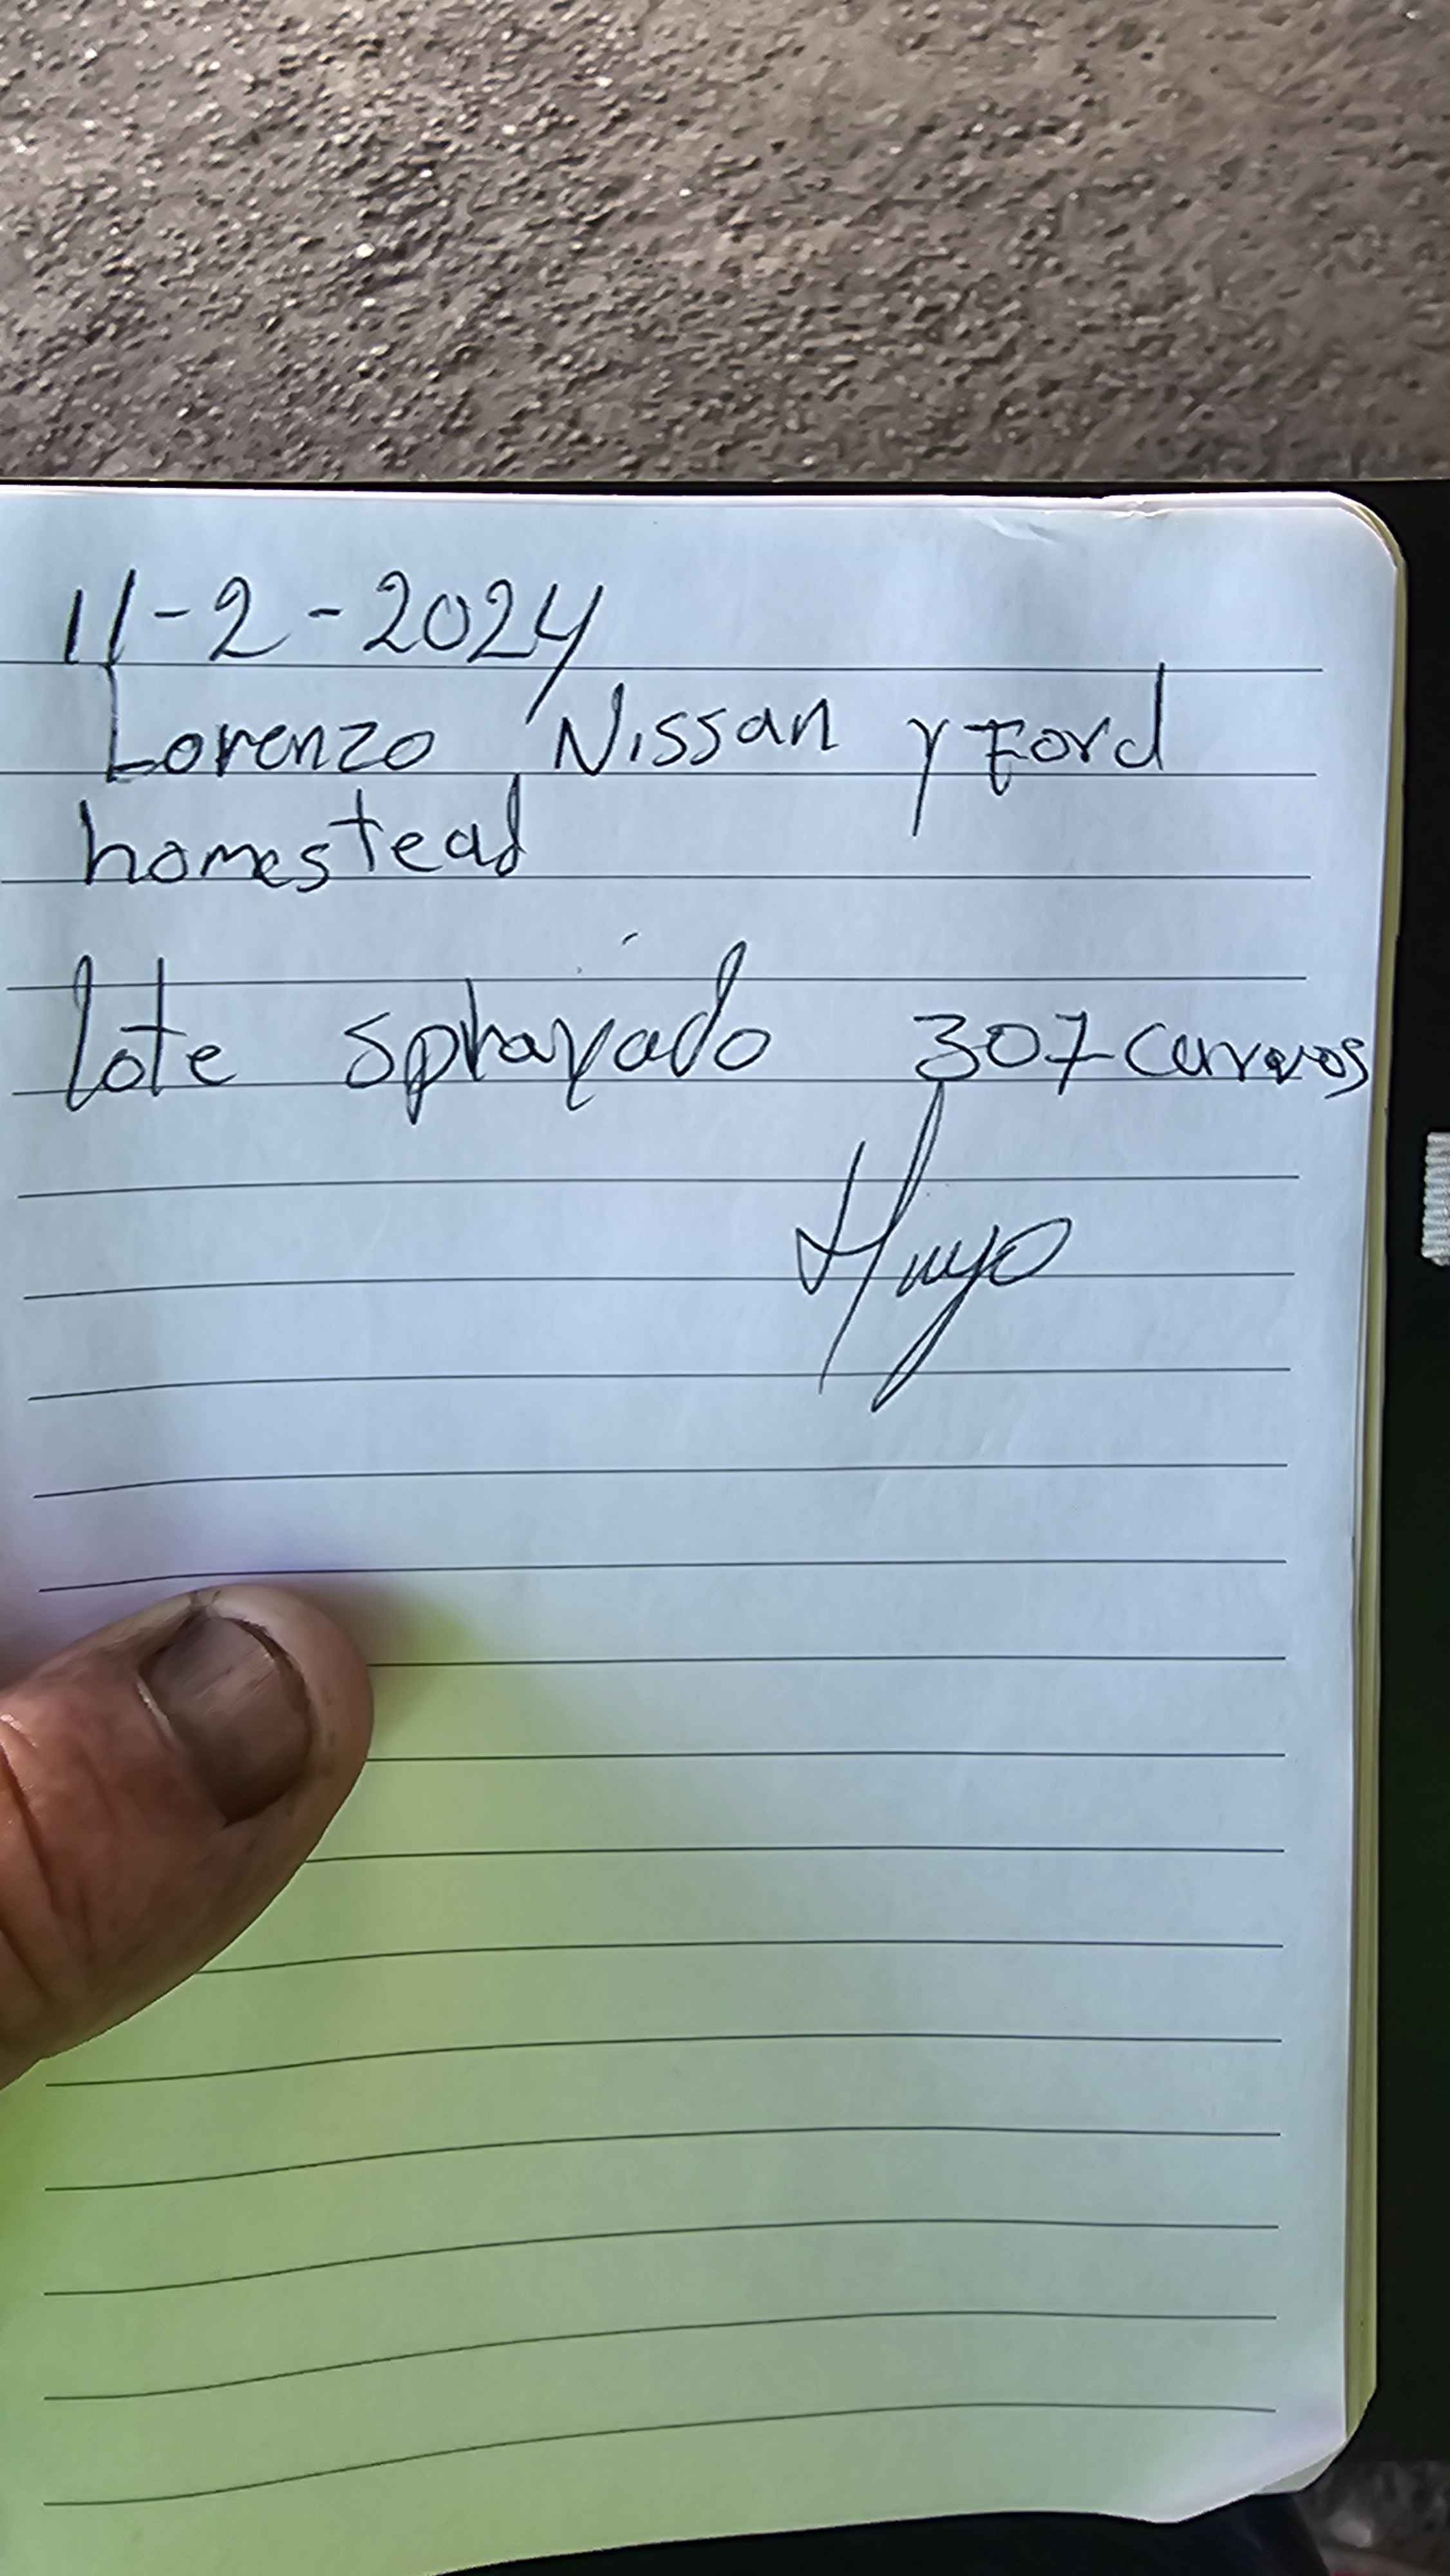 11-2-2024
Lorenzo Nissan y Ford
homestead
lote sphayado 307 carros
Hugo